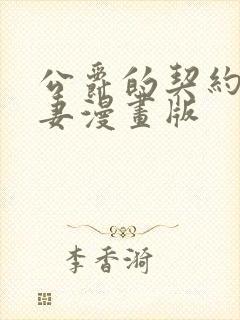 公爵的契約
妻漫畫版
李香漪